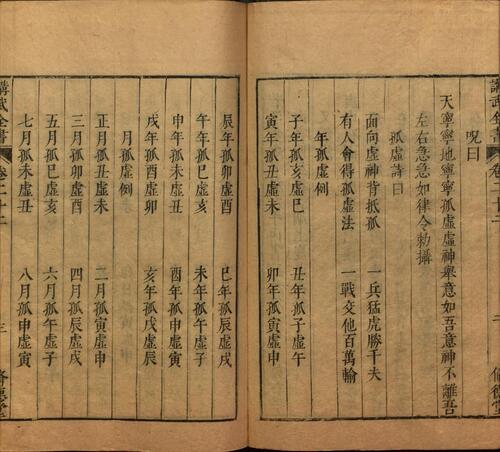 呪曰
天寧寧地寧寧孤虛虛神與意如吾意神不離吾
左右急急如律令勅攝
孤虛詩曰
面向虛神背抵孤　一兵猛虎勝千夫
有人會得孤虛法　一戰交他百萬輸
年孤虛例
子年孤亥虛巳　丑年孤子虛午
寅年孤丑虛未　卯年孤寅虛申
辰年孤卯虛酉　巳年孤辰虛戌
午年孤巳虛亥　未年孤午虛子
申年孤未虛丑　酉年孤申虛寅
戌年孤酉虛卯　亥年孤戌虛辰
月孤虛例
正月孤丑虛未　二月孤寅虛申
三月孤卯虛酉　四月孤辰虛戌
五月孤巳虛亥　六月孤午虛子
七月孤未虛丑　八月孤申虛寅
講武全書　卷二十二　三